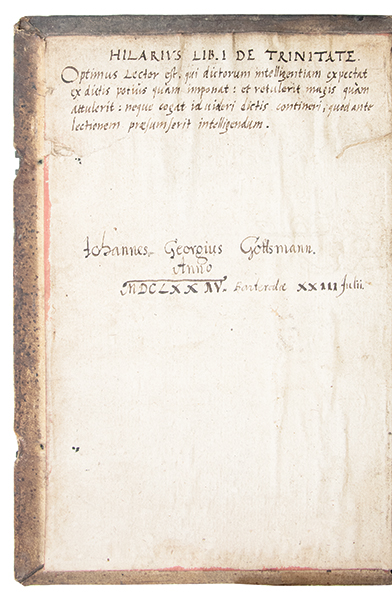 HILARIVS LIB. I DE TRINITATE.
Optimus Lector est, qui dictorum intelligentiam expectat
ex dictis potius quam imponat: et retulerit magis quam
attulerit: neque cogat id videri dictis contineri, quod ante
lectionem præsumserit intelligendum.
Johannes Georgius Gottsmann.
Anno
XXIII Julii